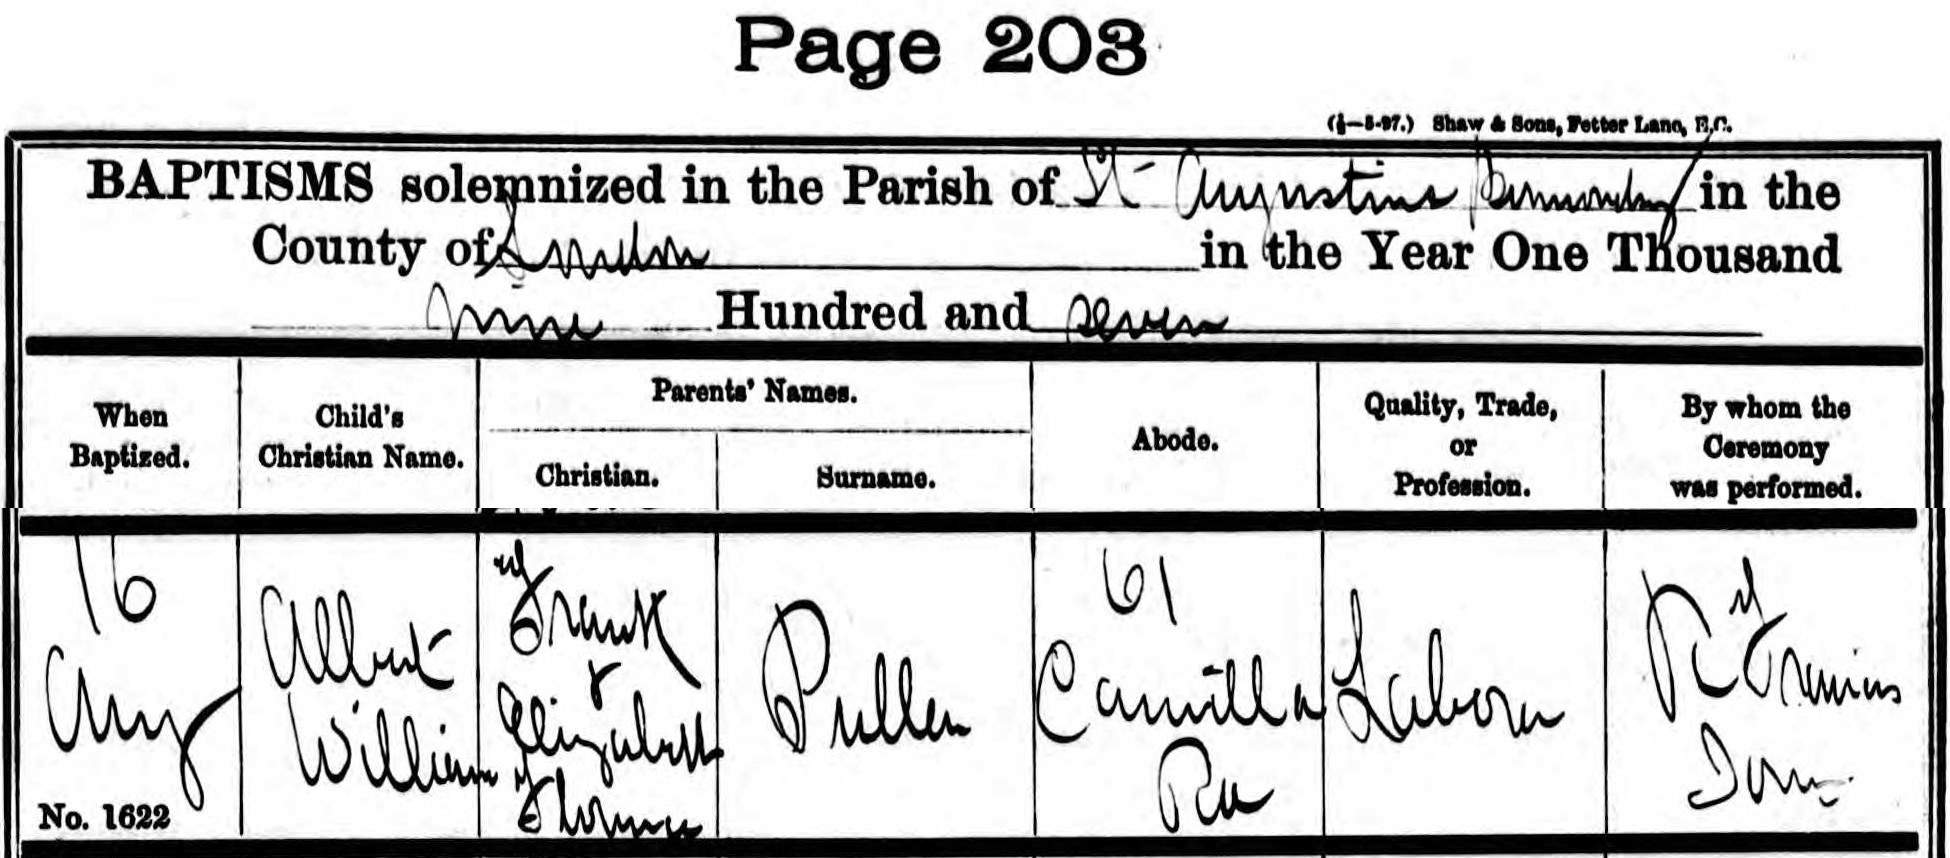 Page 203
(½—5-97.) Shaw & Sons, Fetter Lane, E.C.
BAPTISMS solemnized in the Parish of St Augustins Bermondsey in the
County of London in the Year One Thousand
nine Hundred and seven
When Baptized.
Child's Christian Name.
Parents' Names.
Christian.
Surname.
Abode.
Quality, Trade, or Profession.
By whom the Ceremony was performed.
16
Aug
No. 1622
Albert
William
Frank
&
Elizabeth
Thomas
Pullen
61
Camilla
Rd
Labourer
R